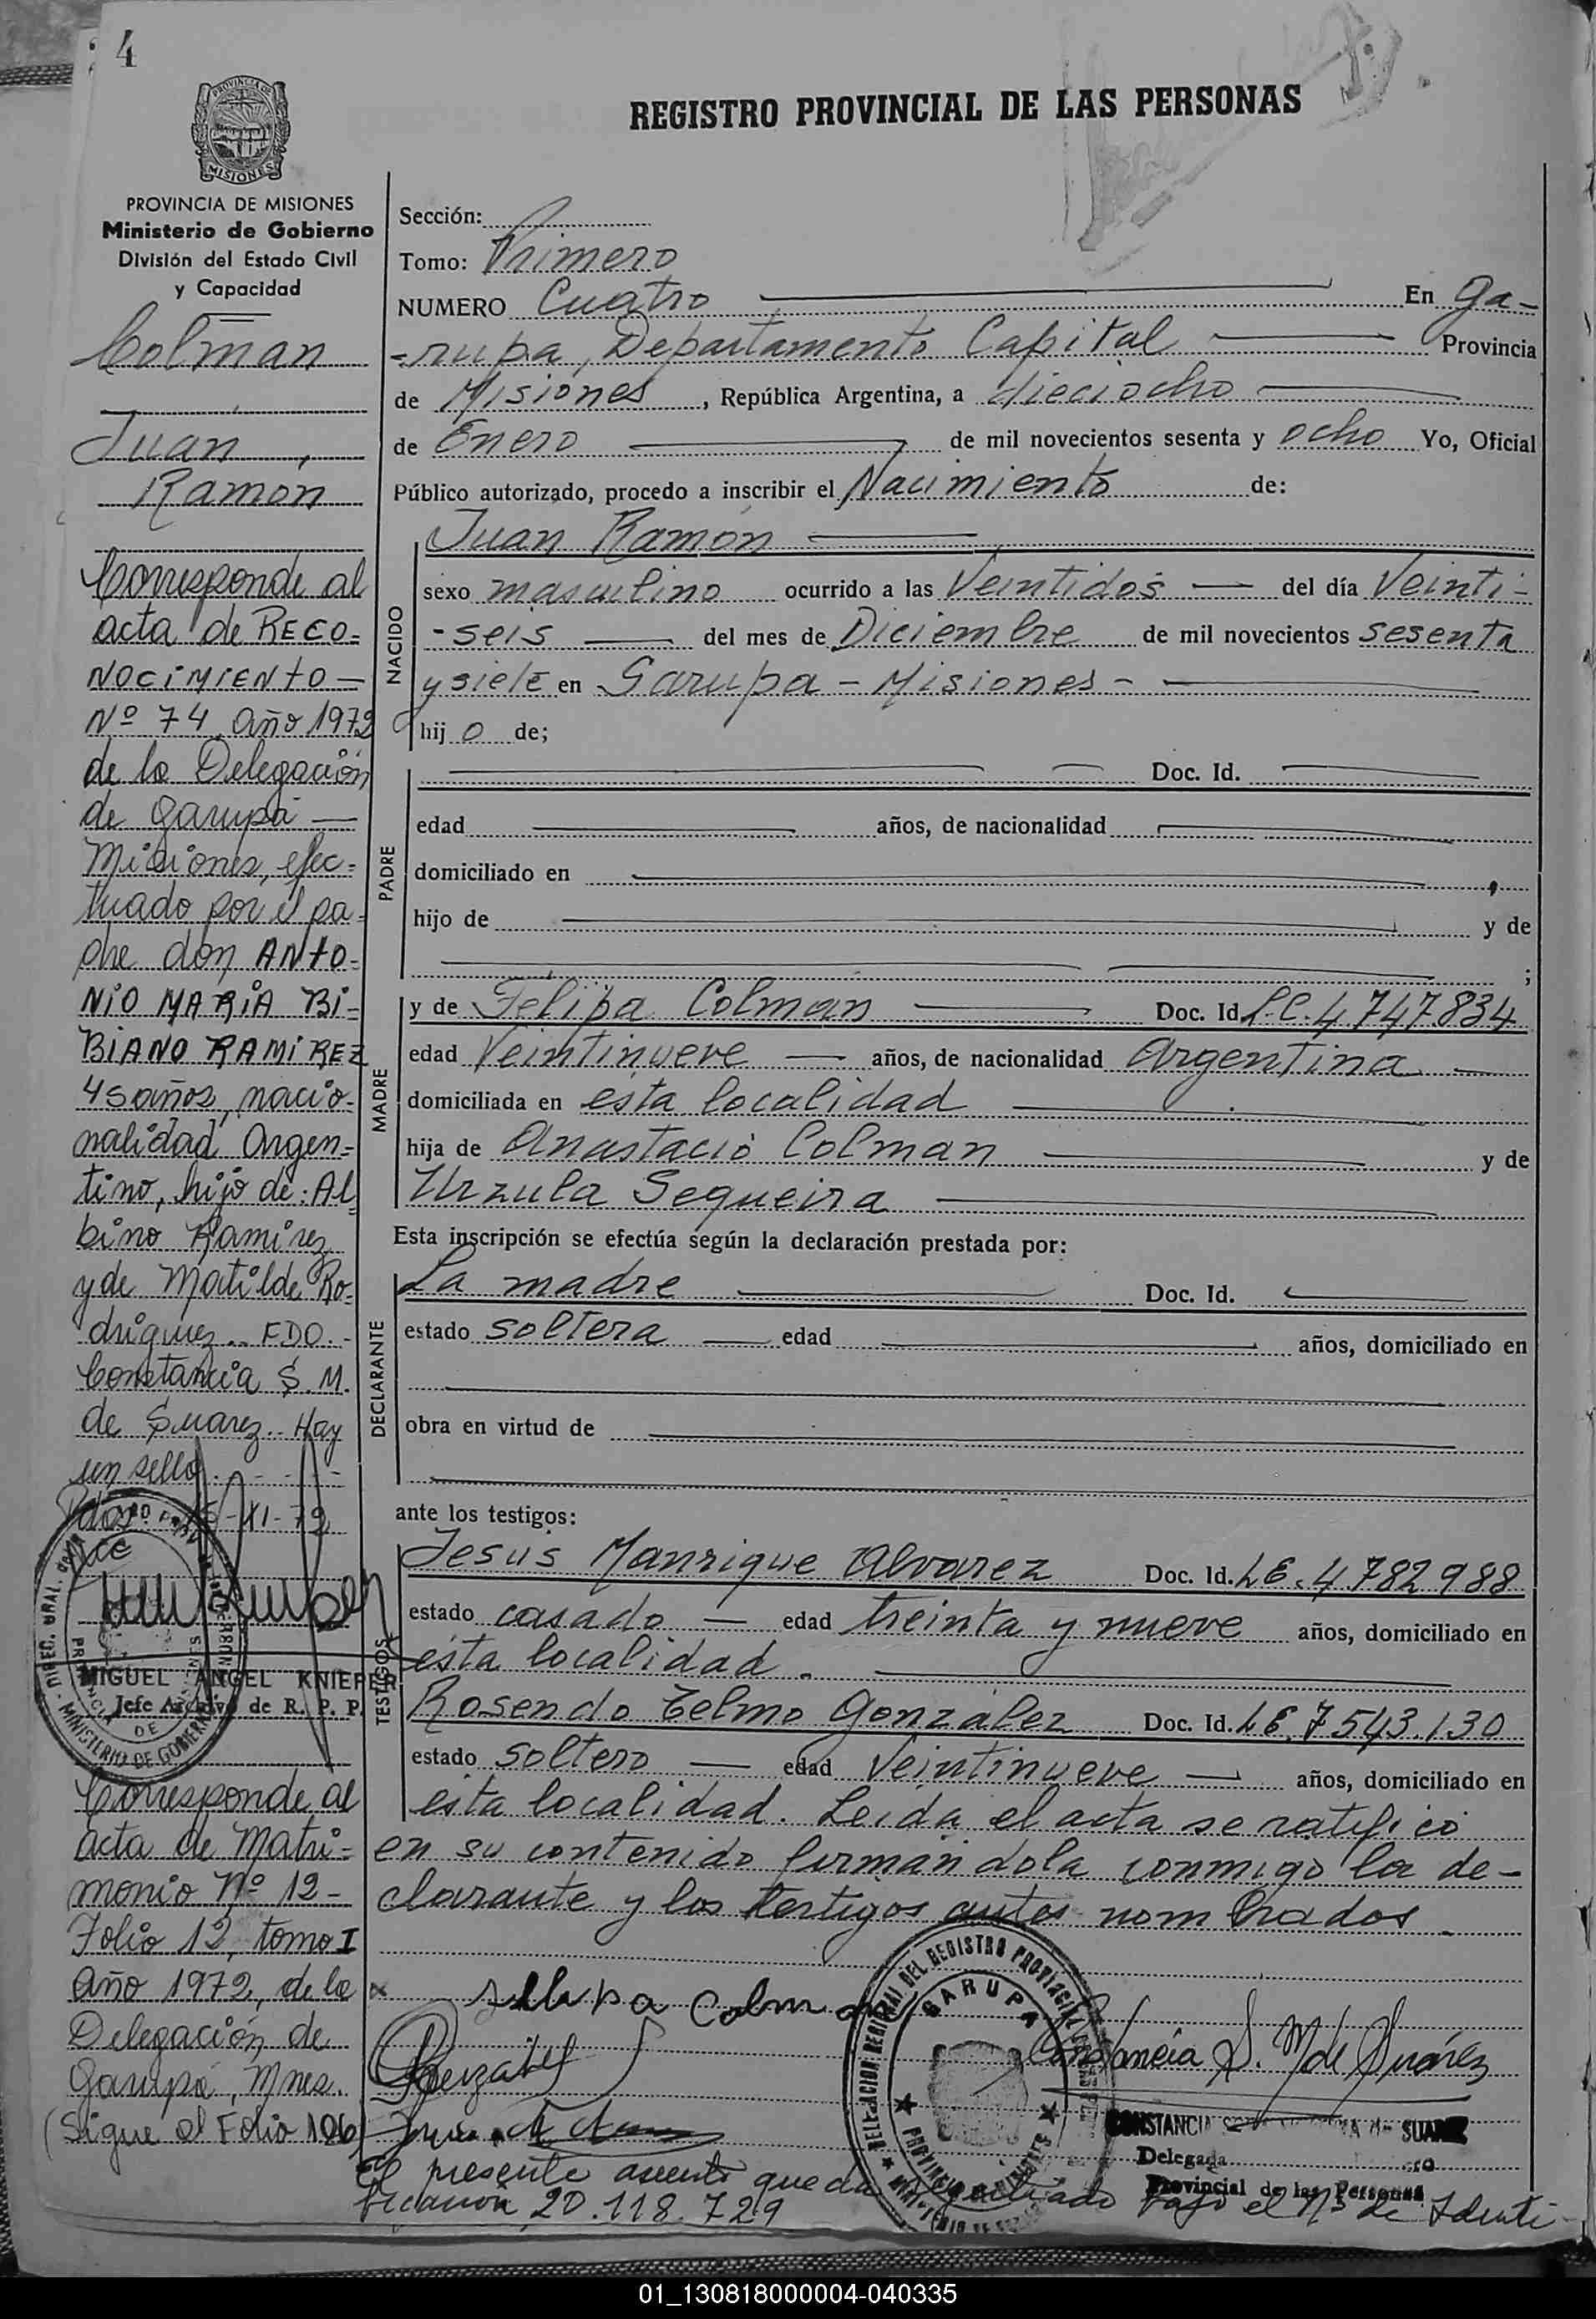 4
REGISTRO PROVINCIAL DE LAS PERSONAS
PROVINCIA DE MISIONES
MISIONES
PROVINCIA DE MISIONES
Ministerio de Gobierno
División del Estado Civil
y Capacidad
Colman
Juan,
Ramón
Corresponde al
acta de RECO=
NOCIMIENTO —
Nº 74, año 1972
de la Delegación
de Garupá —
Misiones, efec=
tuado por el pa=
dre don ANTO=
NIO MARIA BI=
BIANO RAMIREZ
45 años, nacio=
nalidad Argen=
tino, hijo de: Al=
bino Ramirez
y de Matilde Ro=
driguez.. FDO.-
Constancia S. M.
de Suarez.. Hay
un sello.
Pdas. 15-XI-72
MIGUEL ANGEL KNIEPER
Jefe Archivo de R. P. P.
MINISTERIO DE GOBIERNO
Corresponde al
acta de Matri=
monio Nº 12-
Folio 12, tomo I
año 1972, de la
Delegación de
Garupá, Mnes.
(Sigue al Folio 106)
Sección:
Tomo: Primero
NUMERO Cuatro En Ga-
-rupa, Departamento Capital Provincia
de Misiones, República Argentina, a dieciocho
de Enero de mil novecientos sesenta y ocho Yo, Oficial
Público autorizado, procedo a inscribir el Nacimiento de:
NACIDO
Juan Ramón
sexo masculino ocurrido a las Veintidos — del día Veinti-
-seis — del mes de Diciembre de mil novecientos sesenta
y siete en Garupa - Misiones -
hij o de;
PADRE
Doc. Id.
edad años, de nacionalidad
domiciliado en ,
hijo de y de
;
MADRE
y de Felipa Colman Doc. Id. L.C. 4.747.834
edad Veintinueve — años, de nacionalidad Argentina
domiciliada en esta localidad
hija de Anastacio Colman y de
Urzula Sequeira
Esta inscripción se efectúa según la declaración prestada por:
DECLARANTE
La madre Doc. Id.
estado soltera — edad años, domiciliado en
obra en virtud de
ante los testigos:
TESTIGOS
Jesús Manrique Alvarez Doc. Id. L.E. 4782988
estado casado — edad treinta y nueve años, domiciliado en
esta localidad.
Rosendo Telmo González Doc. Id. L.E. 7543.130
estado soltero — edad Veintinueve — años, domiciliado en
esta localidad. Leida el acta se ratificó
en su contenido firmándola conmigo la de-
clarante y los testigos antes nombrados.
DELEGACION REGIONAL DEL REGISTRO PROVINCIAL
GARUPA
Constancia S. M de Suárez
CONSTANCIA de SUAREZ
Delegada
Provincial de las Personas
El presente asiento queda bajo el Nº de Identi-
ficación 20.118.729
01_130818000004-040335